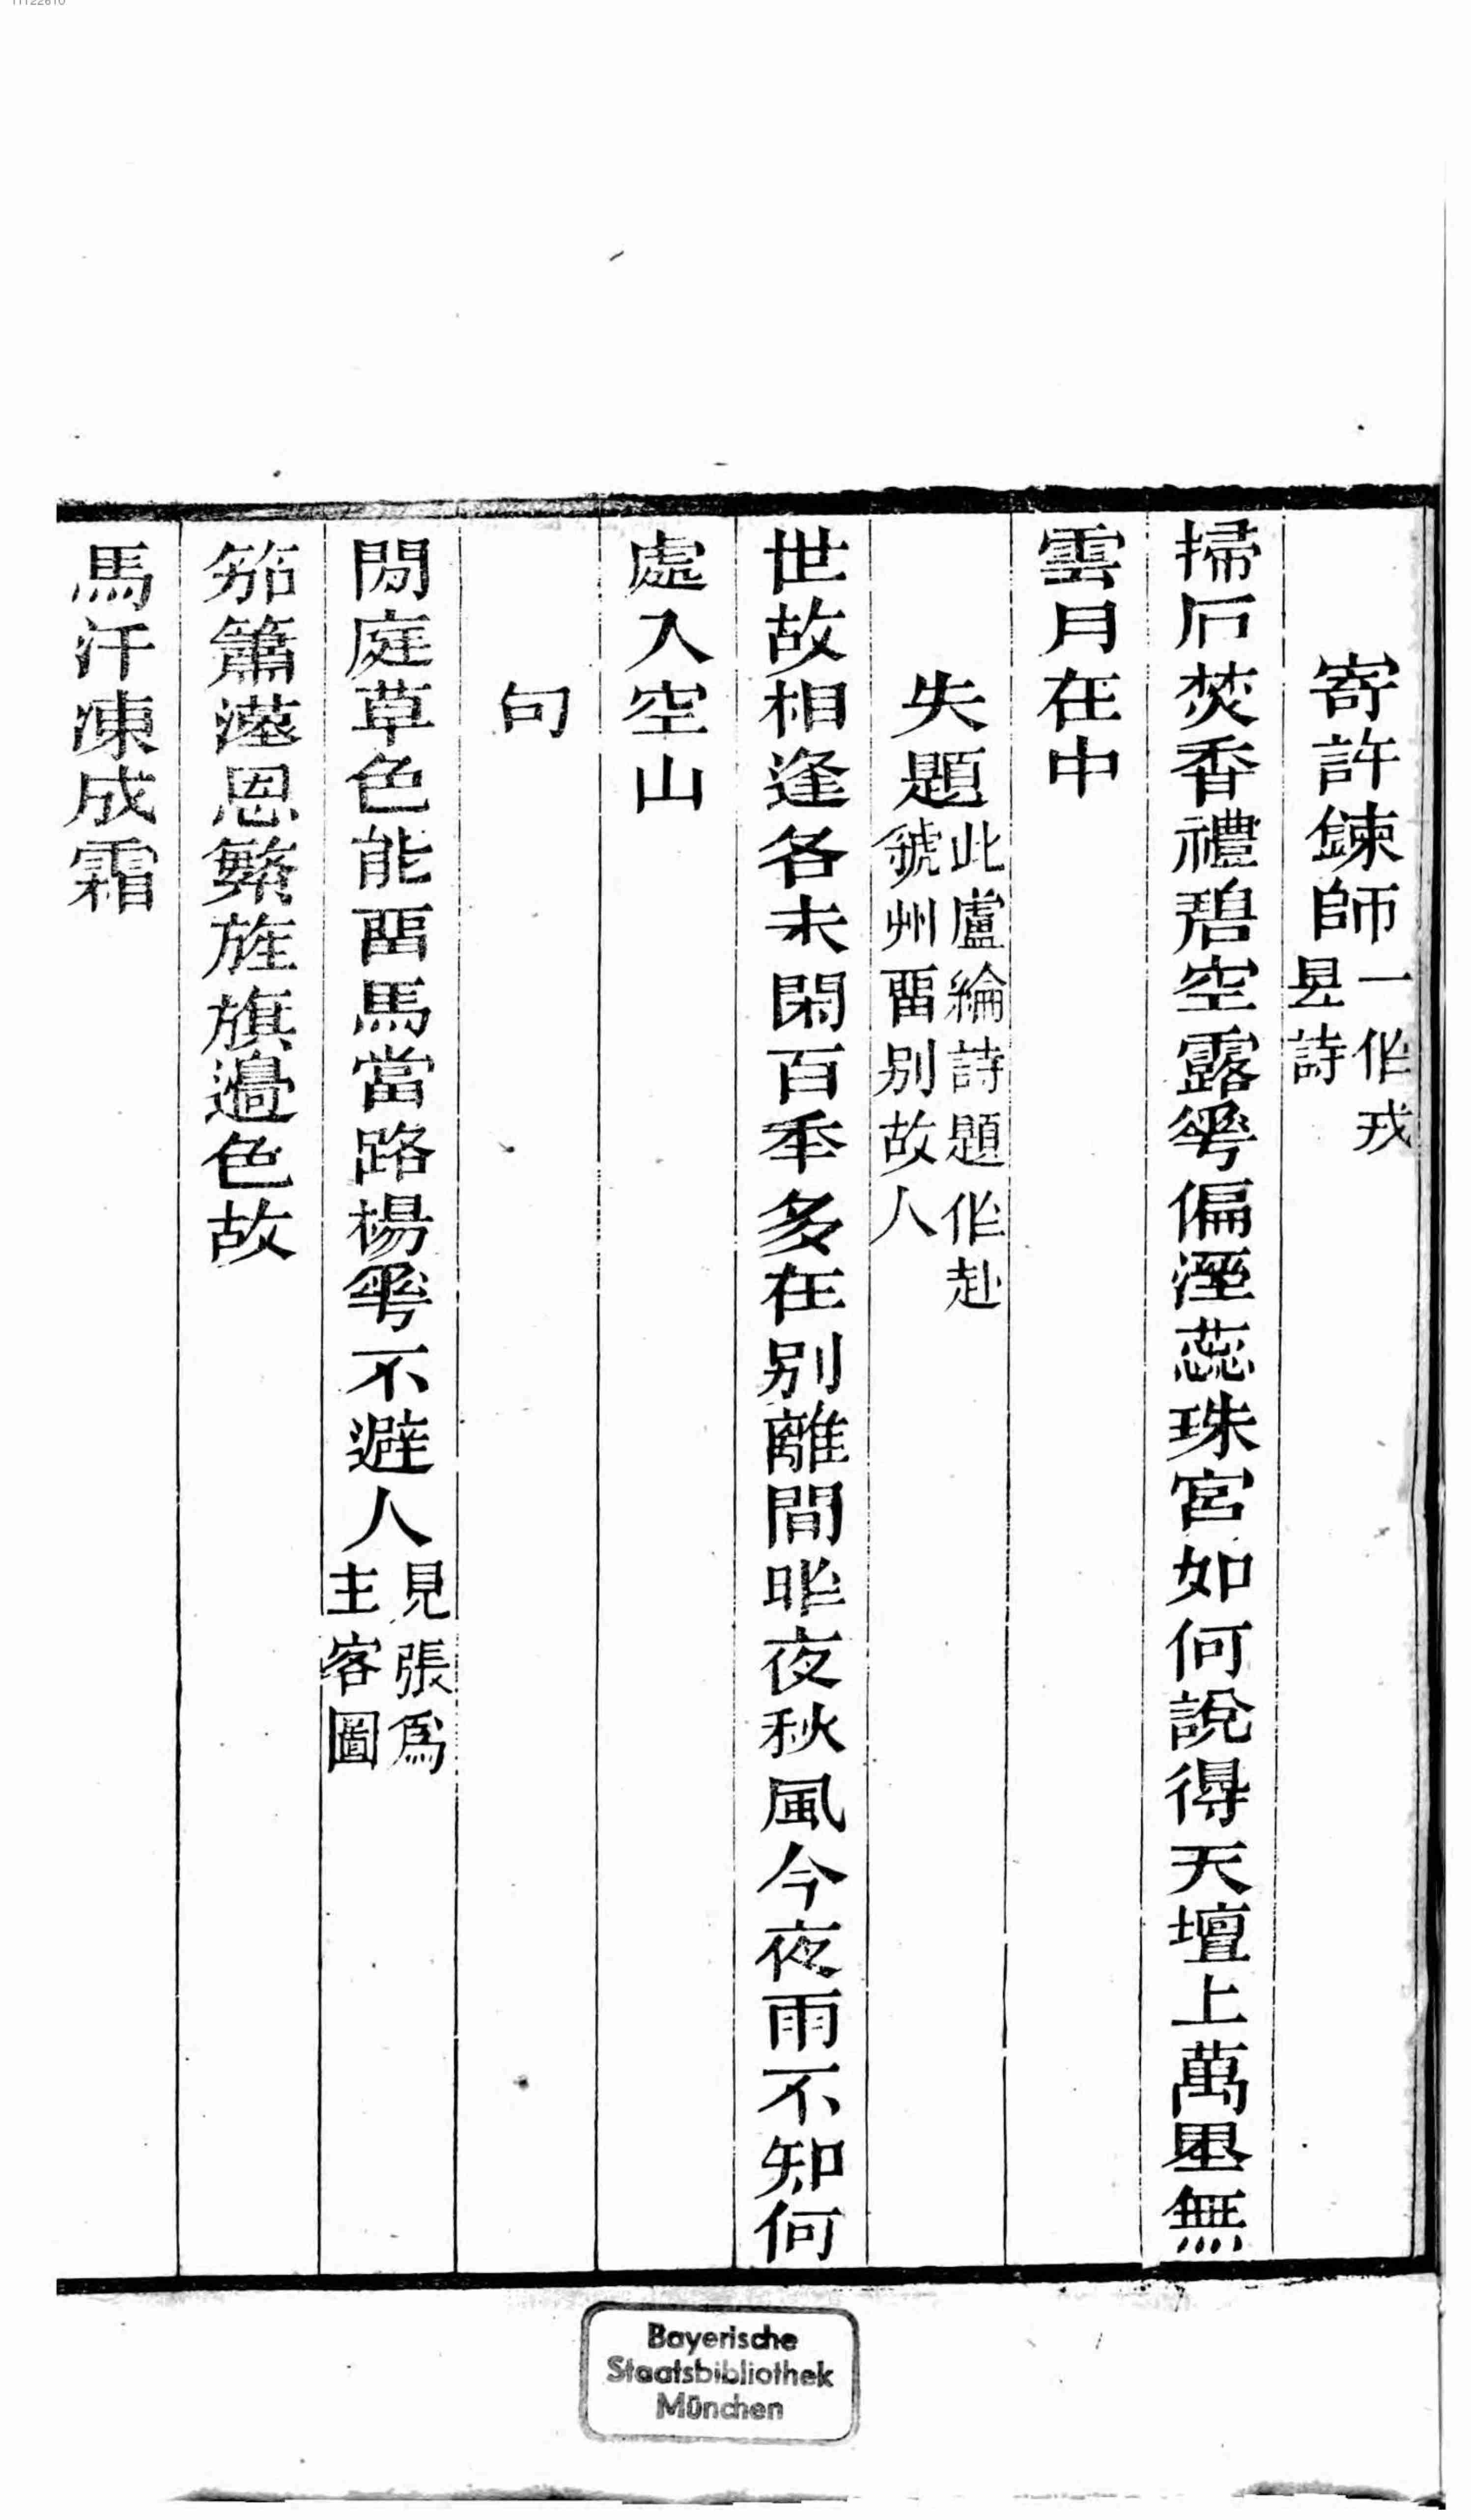 11122610
寄許鍊師一作戎
昱詩
掃石焚香禮碧空露華偏溼蕊珠宮如何說得天壇上萬里無
雲月在中
失題此盧綸詩題作赴
虢州留別故人
世故相逢各未閑百年多在別離間昨夜秋風今夜雨不知何
處入空山
句
閒庭草色能留馬當路楊華不避人見張爲
主客圖
笳簫里恩繁旌旗邊色故
馬汗凍成霜
Bayerische
Staatsbibliothek
München